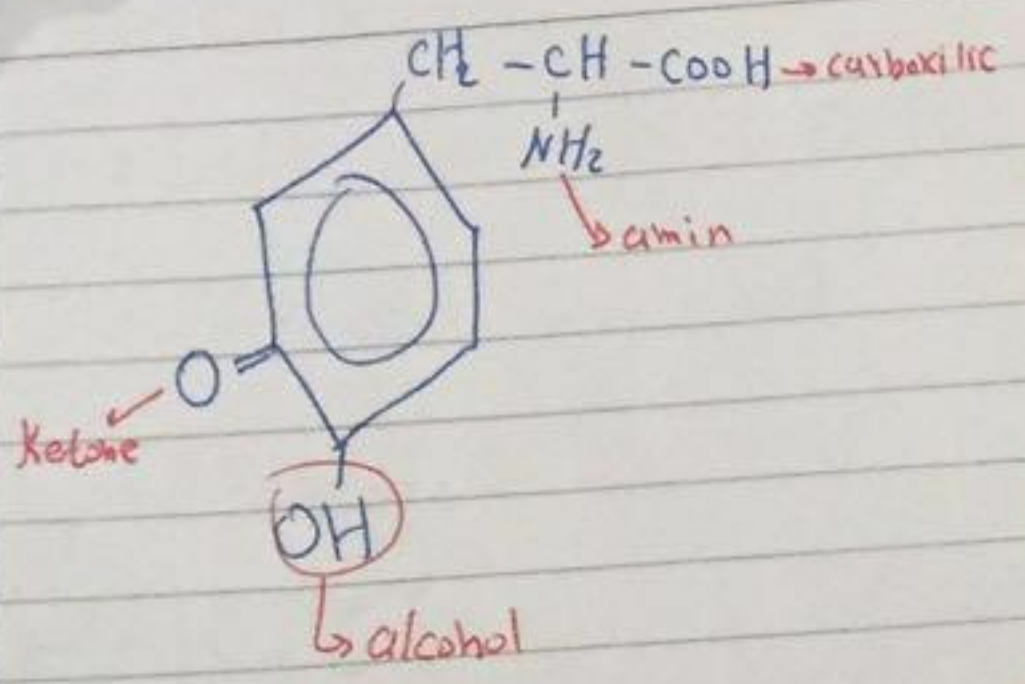 CH2 - CH - COOH → carboxilic
NH2
amin
O
Ketone
OH
alcohol